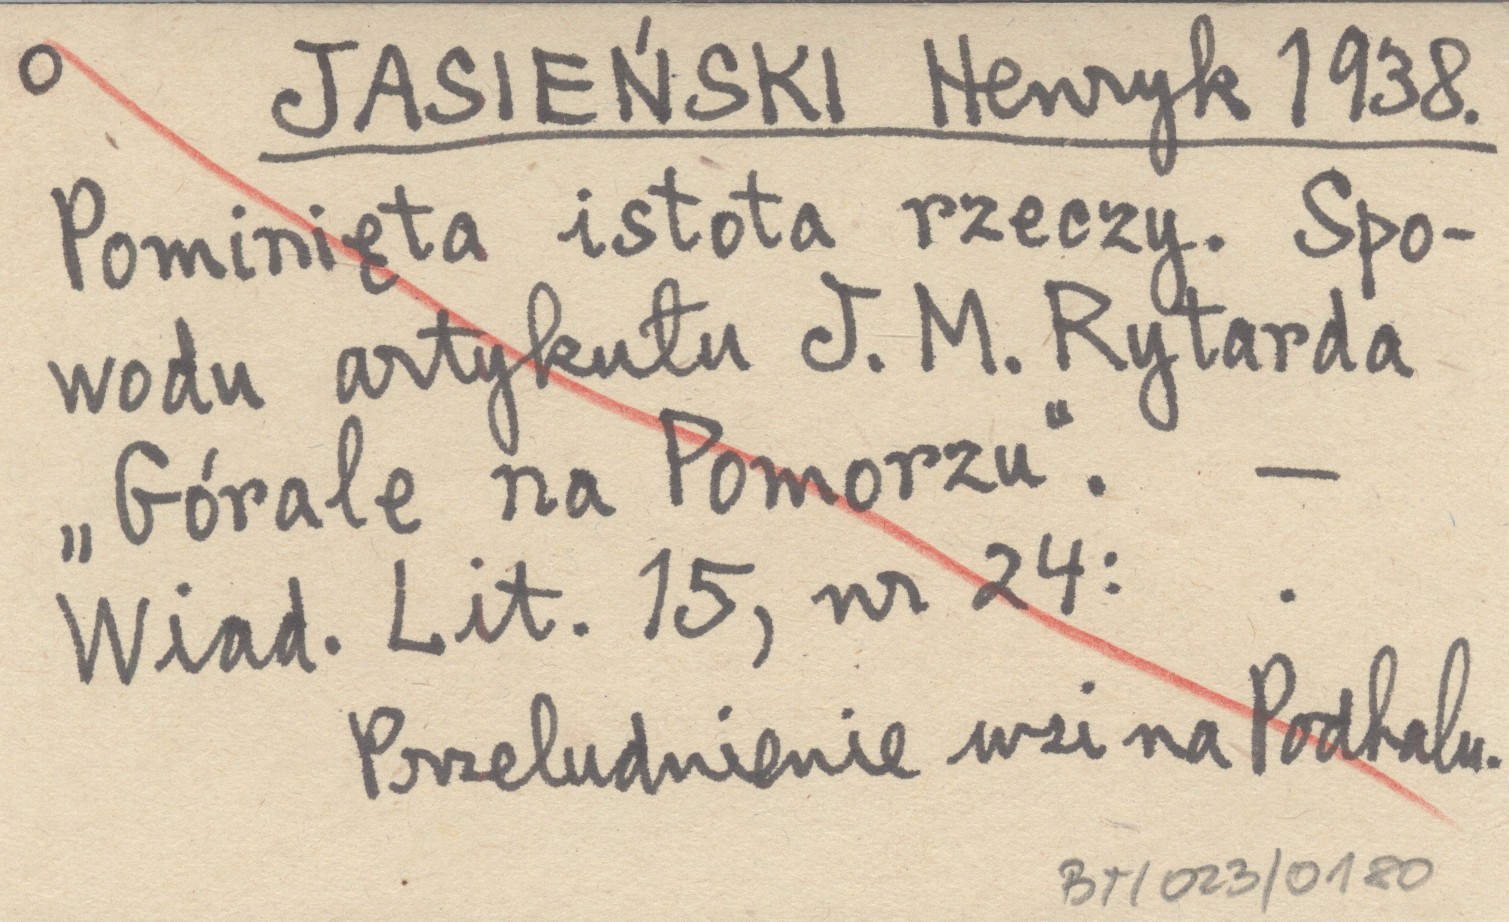 o JASIEŃSKI Henryk 1938.
Pominięta istota rzeczy. Spo-
wodu artykułu J. M. Rytarda
„Górale na Pomorzu“. —
Wiad. Lit. 15, nr 24: .
Przeludnienie wsi na Podhalu.
BT/023/0180